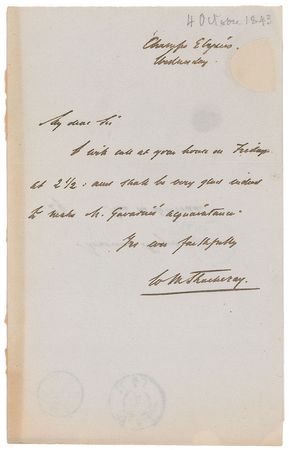 4 Octobre 1843
Champs Elysées.
Wednesday.
My dear Sir
I will call at your house on Friday
at 2 1/2: and shall be very glad indeed
to make M. Gavarni's acquaintance.
Yrs ever faithfully
W M Thackeray